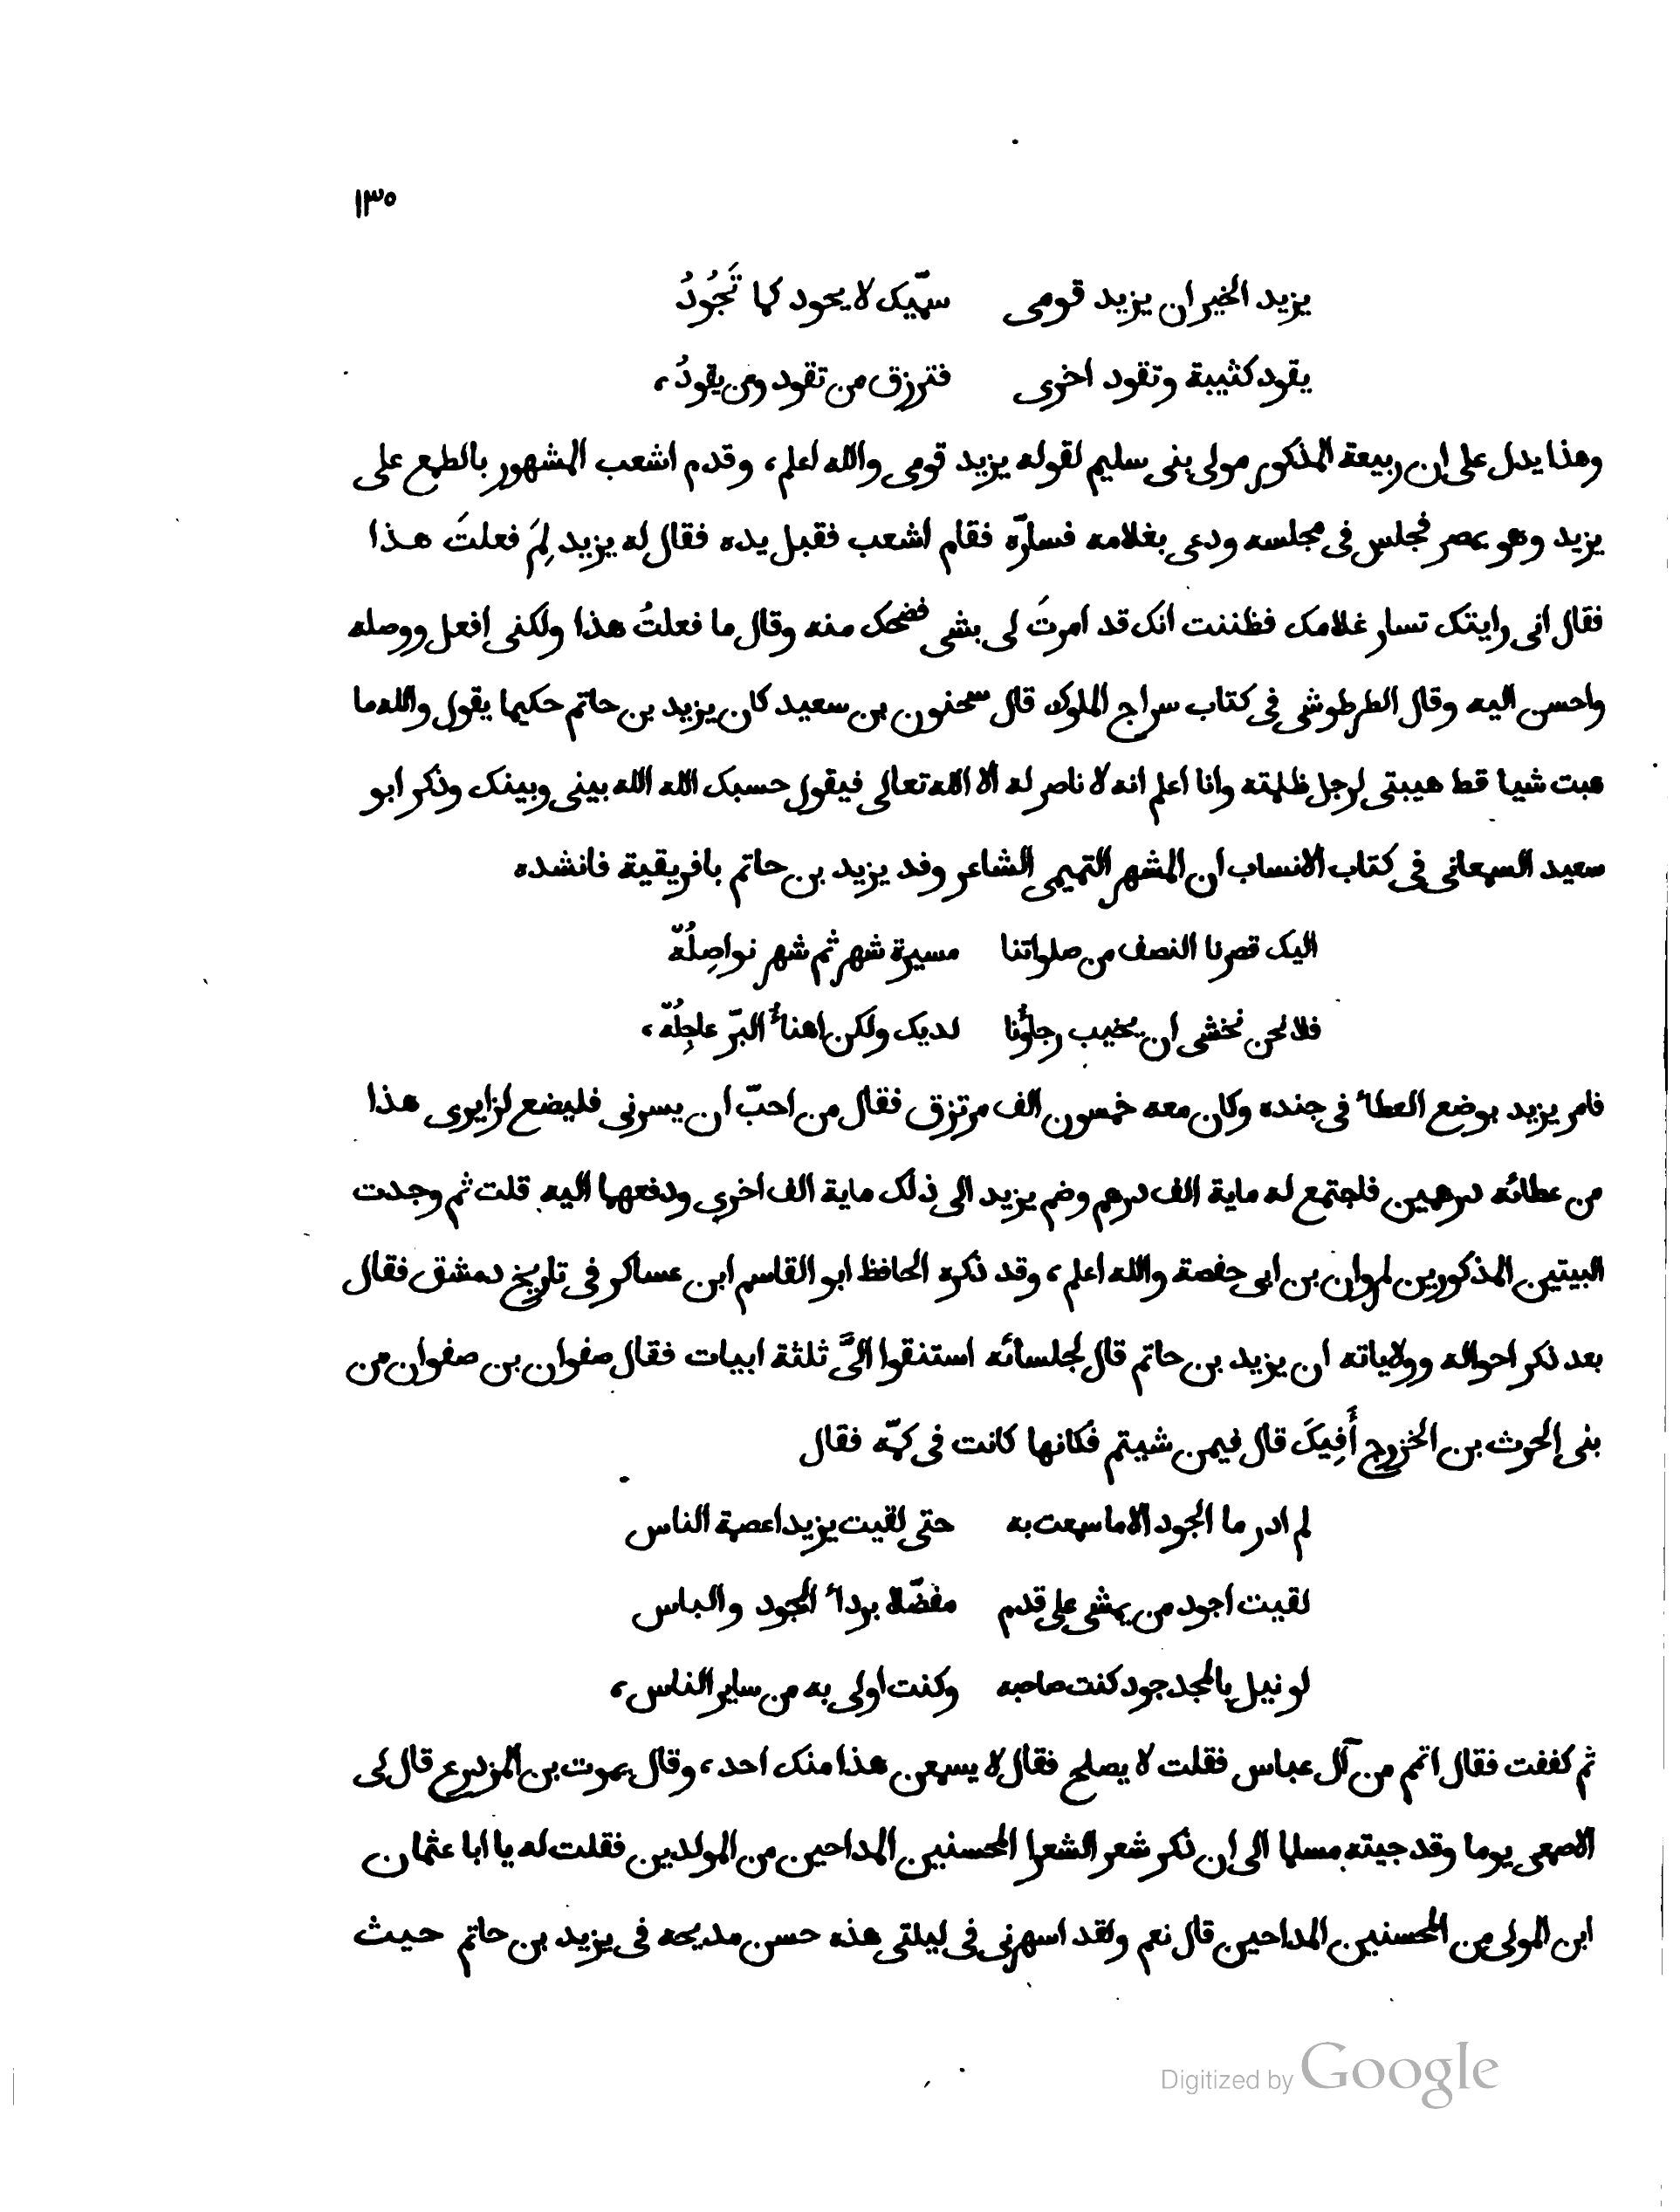 ١٣٥
يزيد الخير ان يزيد قومى سميّك لا يجود كما تَجُودُ
يقود كتيبة وتقود اخرى فترزق من تقود ومن يقودُ،
وهذا يدل على ان ربيعة المذكور مولى بنى سليم لقوله يزيد قومى والله اعلم، وقدم اشعب المشهور بالطمع على
يزيد وهو بمصر فجلس فى مجلسه ودعى بغلامه فسارّه فقام اشعب فقبل يده فقال له يزيد لِمَ فعلتَ هذا
فقال انى رايتك تسار غلامك فظننت انك قد امرتَ لى بشى فضحك منه وقال ما فعلتُ هذا ولكنى افعل ووصله
واحسن اليه وقال الطرطوشى فى كتاب سراج الملوك قال سحنون بن سعيد كان يزيد بن حاتم حكيما يقول والله ما
هبت شيا قط هيبتى لرجل ظلمته وانا اعلم انه لا ناصر له الا الله تعالى فيقول حسبك الله الله بينى وبينك وذكر ابو
سعيد السمعانى فى كتاب الانساب ان المشهر التميمى الشاعر وفد يزيد بن حاتم بافريقية فانشده
اليك قصرنا النصف من صلواتنا مسيرة شهر ثم شهر نواصِلُهْ
فلا نحن نخشى ان يخيب رجاؤنا لديك ولكن اهنأ البرّ عاجِلُهْ،
فامر يزيد بوضع العطاء فى جنده وكان معه خمسون الف مرتزق فقال من احبّ ان يسرنى فليضع لزايرى هذا
من عطائه درهمين فاجتمع له ماية الف درهم وضم يزيد الى ذلك ماية الف اخرى ودفعها اليه قلت ثم وجدت
البيتين المذكورين لمروان بن ابى حفصة والله اعلم، وقد ذكره الحافظ ابو القاسم ابن عساكر فى تاريخ دمشق فقال
بعد ذكر احواله وولاياته ان يزيد بن حاتم قال لجلسائه استنقوا الىَّ ثلثة ابيات فقال صفوان بن صفوان من
بنى الحرث بن الخزرج أَفِيكَ قال فيمن شيتم فكانها كانت فى كمّه فقال
لم ادر ما الجود الا ما سمعت به حتى لقيت يزيد اعصمة الناس
لقيت اجود من يمشى على قدم مفضّلا برداء الجود والباس
لو نيل بالمجد جود كنت صاحبه وكنت اولى به من ساير الناس،
ثم كففت فقال اتمم من آل عباس فقلت لا يصلح فقال لا يسمعن هذا منك احد، وقال يموت بن المزدرع قال لى
الاصمعى يوما وقد جيته مسلما الى ان ذكر شعر الشعرا المحسنين المداحين من المولدين فقلت له يا ابا عثمان
ابن المولى من المحسنين المداحين قال نعم ولقد اسهرنى فى ليلتى هذه حسن مديحه فى يزيد بن حاتم حيث
Digitized by Google